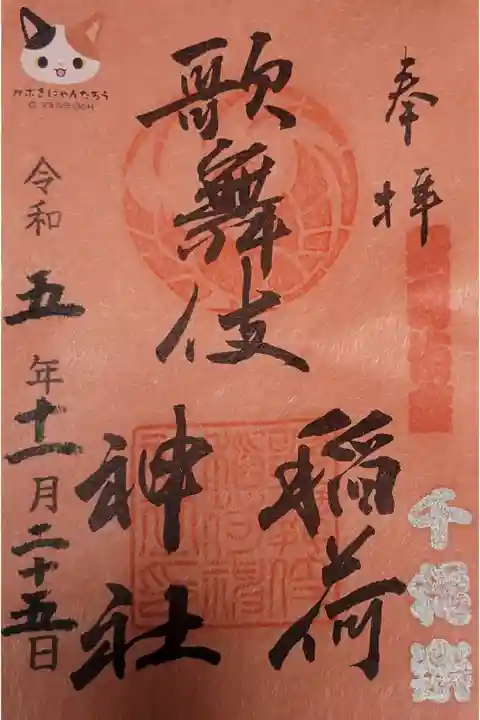 奉拝
千穐楽
歌舞伎
稲荷
神社
令和五年十一月二十五日
カブきにゃんたろう